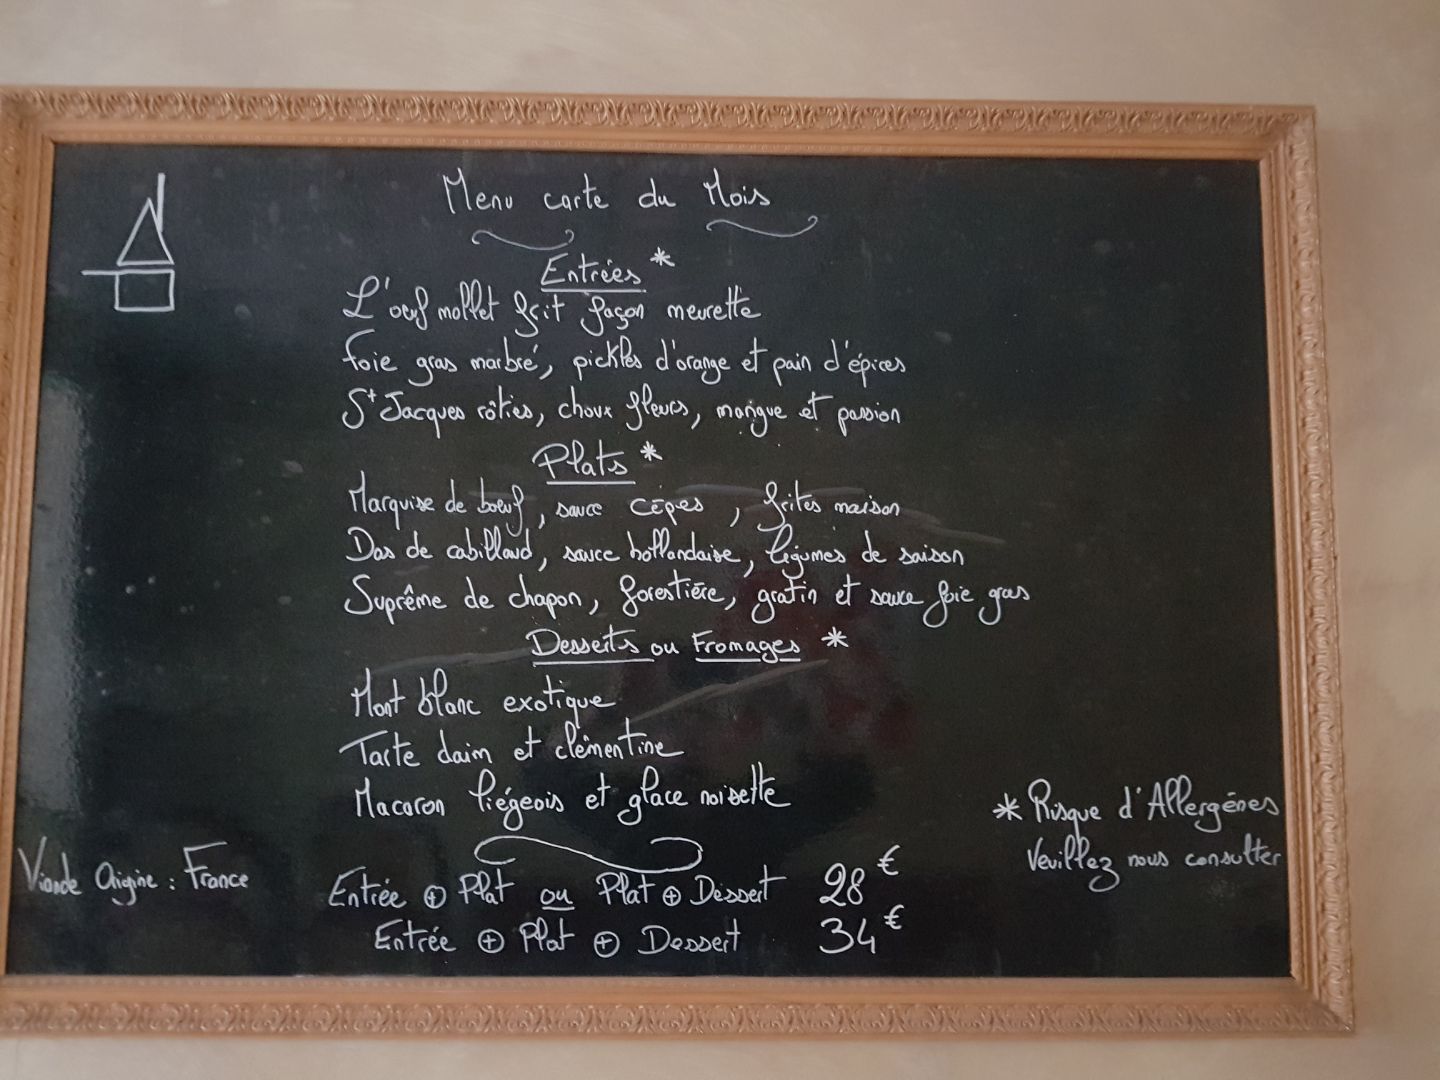 Menu carte du Mois
Entrées *
L'oeuf mollet frit façon meurette
Foie gras marbré, pickles d'orange et pain d'épices
St Jacques rôties, choux fleurs, mangue et passion
Plats *
Marquise de boeuf, sauce cèpes, frites maison
Dos de cabillaud, sauce hollandaise, légumes de saison
Suprême de chapon, forestière, gratin et sauce foie gras
Desserts ou Fromages *
Mont blanc exotique
Tarte daim et clémentine
Macaron liégeois et glace noisette
* Risque d'Allergènes
Veuillez nous consulter
Viande Origine : France
Entrée + Plat ou Plat + Dessert 28€
Entrée + Plat + Dessert 34€